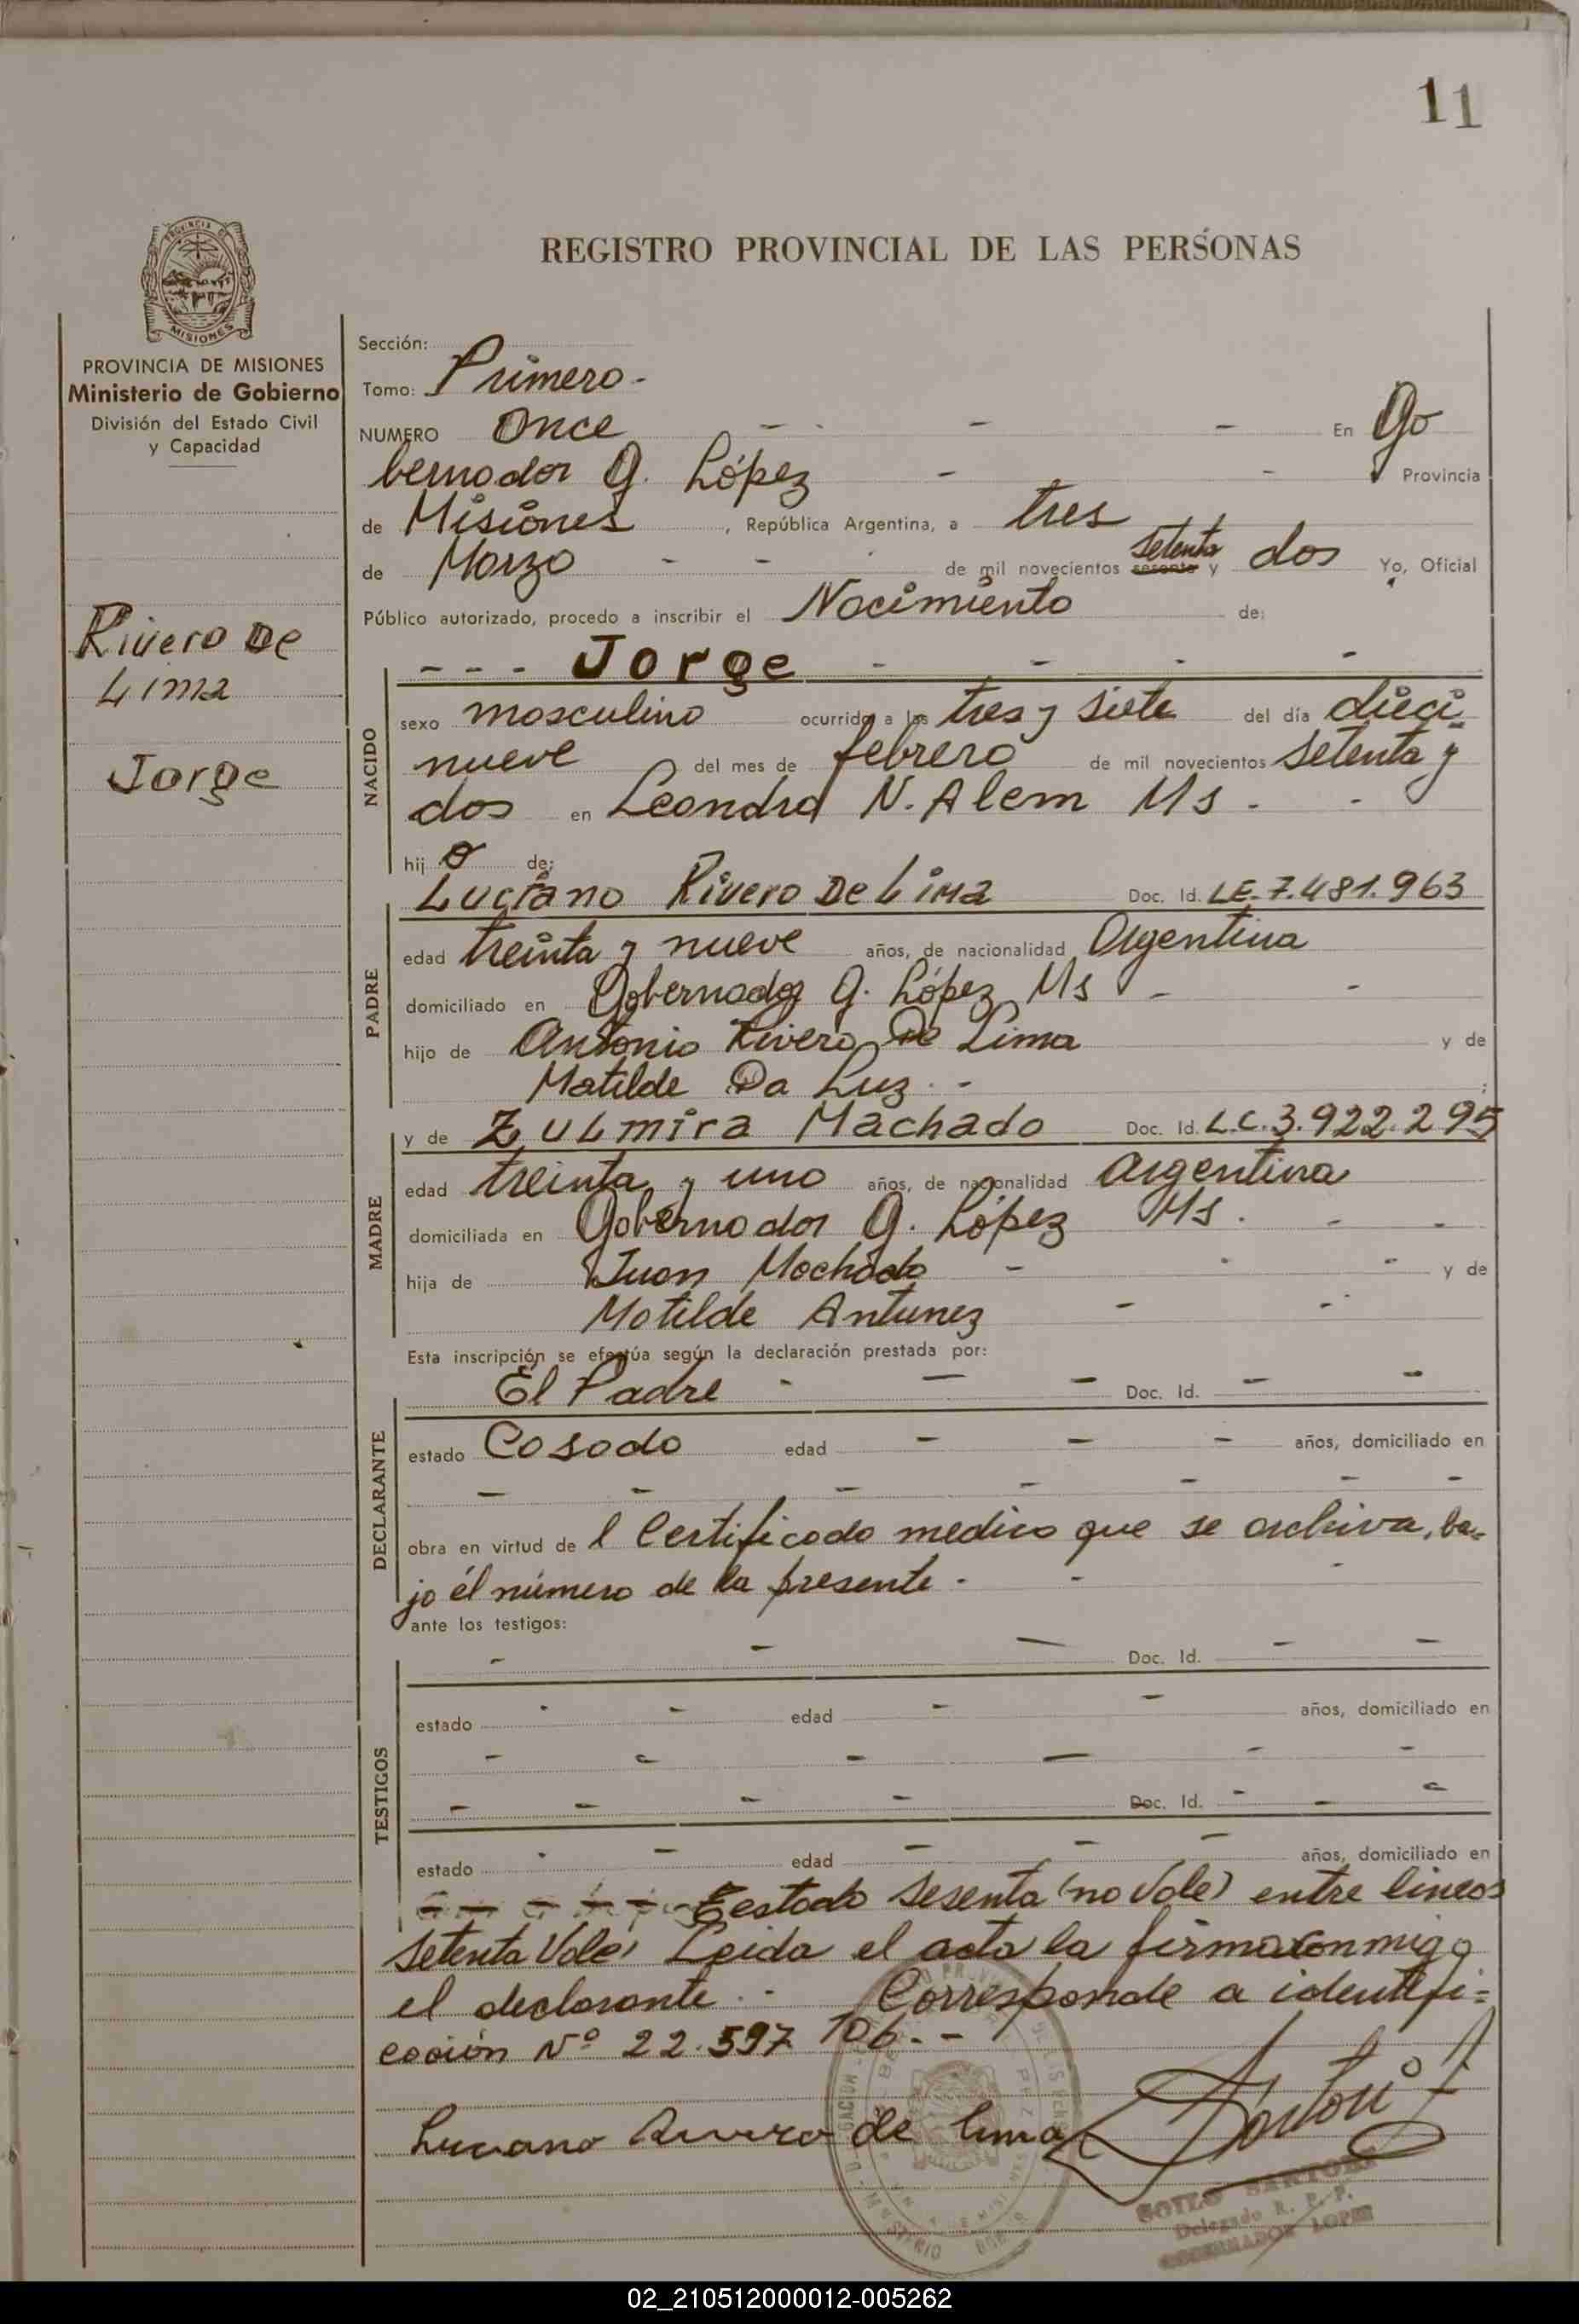 11
REGISTRO PROVINCIAL DE LAS PERSONAS
PROVINCIA DE
MISIONES
PROVINCIA DE MISIONES
Ministerio de Gobierno
División del Estado Civil
y Capacidad
Rivero De
Lima
Jorge
Sección:
Tomo: Primero -
NUMERO Once - - - En Go
bernador G. López - - Provincia
de Misiones, República Argentina, a tres
de Marzo - - de mil novecientos sesenta setenta y dos Yo, Oficial
Público autorizado, procedo a inscribir el Nacimiento de:
NACIDO
- - - Jorge - - - -
sexo masculino ocurrido a las tres y siete del día dieci
nueve del mes de febrero de mil novecientos setenta y
dos en Leandro N. Alem Ms - -
hijo de:
PADRE
Luciano Rivero De Lima Doc. Id. LE. 7.481.963
edad treinta y nueve años, de nacionalidad Argentina
domiciliado en Gobernador G. López Ms - -
hijo de Antonio Rivero De Lima y de
Matilde Da Luz - - ;
MADRE
y de Zulmira Machado Doc. Id. L.C. 3.922.295
edad treinta y uno años, de nacionalidad Argentina
domiciliada en Gobernador G. López Ms. - -
hija de Juan Machado - - - y de
Matilde Antunez - -
Esta inscripción se efectúa según la declaración prestada por:
DECLARANTE
El Padre - - - Doc. Id. - -
estado Casado edad - - - años, domiciliado en
- - - - - - -
obra en virtud de l Certificado medico que se archiva, ba=
jo él número de la presente - - -
ante los testigos:
TESTIGOS
- - - Doc. Id. - -
estado - - edad - - años, domiciliado en
- - - - - -
- - - - Doc. Id. - - -
estado - - edad - - - años, domiciliado en
Testado sesenta (no Vale) entre lineas
setenta Vale) Leida el acta la firma conmigo
el declarante - - Corresponde a identifi=
cación Nº 22.597.106 - -
Luciano Rivero de Lima
ZOILO SANTORI
Delegado R. P. P.
GOBERNADOR LOPEZ
02_210512000012-005262